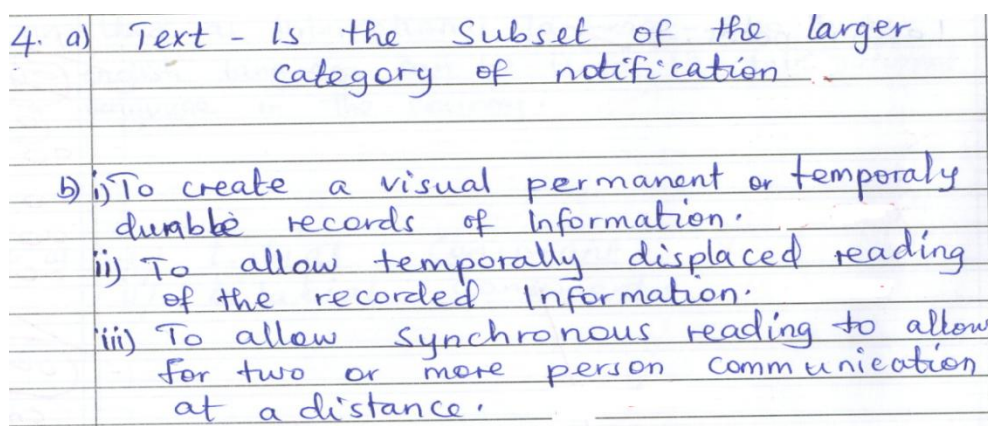 4. a) Text - Is the Subset of the larger
category of notification.
b) i) To create a visual permanent or temporaly
durable records of Information.
ii) To allow temporally displaced reading
of the recorded Information.
iii) To allow synchronous reading to allow
for two or more person communication
at a distance.